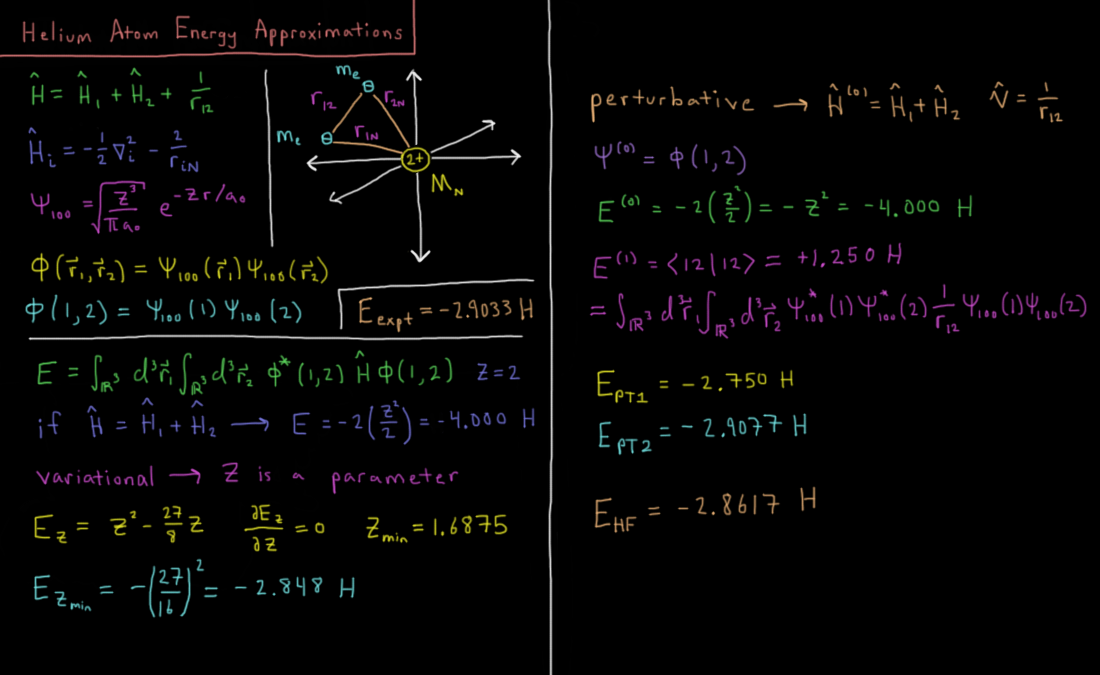 Helium Atom Energy Approximations
Ĥ = Ĥ₁ + Ĥ₂ + 1/r₁₂
Ĥᵢ = -½ ∇ᵢ² - 2/r_iN
Ψ₁₀₀ = √(Z³/πa₀) e^(-Zr/a₀)
mₑ
⊖
r₁₂
r_2N
mₑ ⊖
r_1N
2+
M_N
Φ(r⃗₁,r⃗₂) = Ψ₁₀₀(r⃗₁)Ψ₁₀₀(r⃗₂)
Φ(1,2) = Ψ₁₀₀(1) Ψ₁₀₀(2)
E_expt = -2.9033 H
E = ∫_ℝ³ d³r⃗₁ ∫_ℝ³ d³r⃗₂ Φ*(1,2) Ĥ Φ(1,2) Z=2
if Ĥ = Ĥ₁ + Ĥ₂ → E = -2(Z²/2) = -4.000 H
variational → Z is a parameter
E_Z = Z² - 27/8 Z ∂E_Z/∂Z = 0 Z_min = 1.6875
E_Z_min = -(27/16)² = -2.848 H
perturbative → Ĥ⁽⁰⁾ = Ĥ₁ + Ĥ₂ V̂ = 1/r₁₂
Ψ⁽⁰⁾ = Φ(1,2)
E⁽⁰⁾ = -2(Z²/2) = -Z² = -4.000 H
E⁽¹⁾ = ⟨12|12⟩ = +1.250 H
= ∫_ℝ³ d³r⃗₁ ∫_ℝ³ d³r⃗₂ Ψ*₁₀₀(1) Ψ*₁₀₀(2) 1/r₁₂ Ψ₁₀₀(1)Ψ₁₀₀(2)
E_PT1 = -2.750 H
E_PT2 = -2.9077 H
E_HF = -2.8617 H